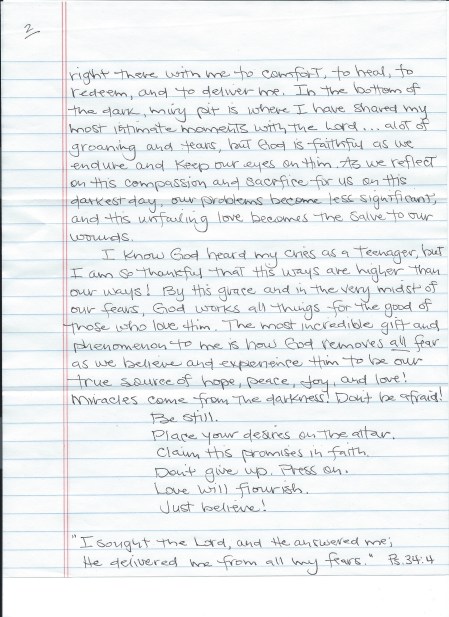 2
right there with me to comfort, to heal, to
redeem, and to deliver me. In the bottom of
the dark, miry pit is where I have shared my
most intimate moments with the Lord... alot of
groaning and tears, but God is faithful as we
endure and keep our eyes on Him. As we reflect
on His compassion and sacrifice for us on His
darkest day, our problems become less significant;
and His unfailing love becomes the salve to our
wounds.
I know God heard my cries as a teenager, but
I am so thankful that His ways are higher than
our ways! By His grace and in the very midst of
our fears, God works all things for the good of
those who love Him. The most incredible gift and
phenomenon to me is how God removes all fear
as we believe and experience Him to be our
true source of hope, peace, joy, and love!
Miracles come from the darkness! Don't be afraid!
Be still.
Place your desires on the altar.
Claim His promises in faith.
Don't give up. Press on.
Love will flourish.
Just believe!
"I sought the Lord, and He answered me;
He delivered me from all my fears." Ps. 34:4